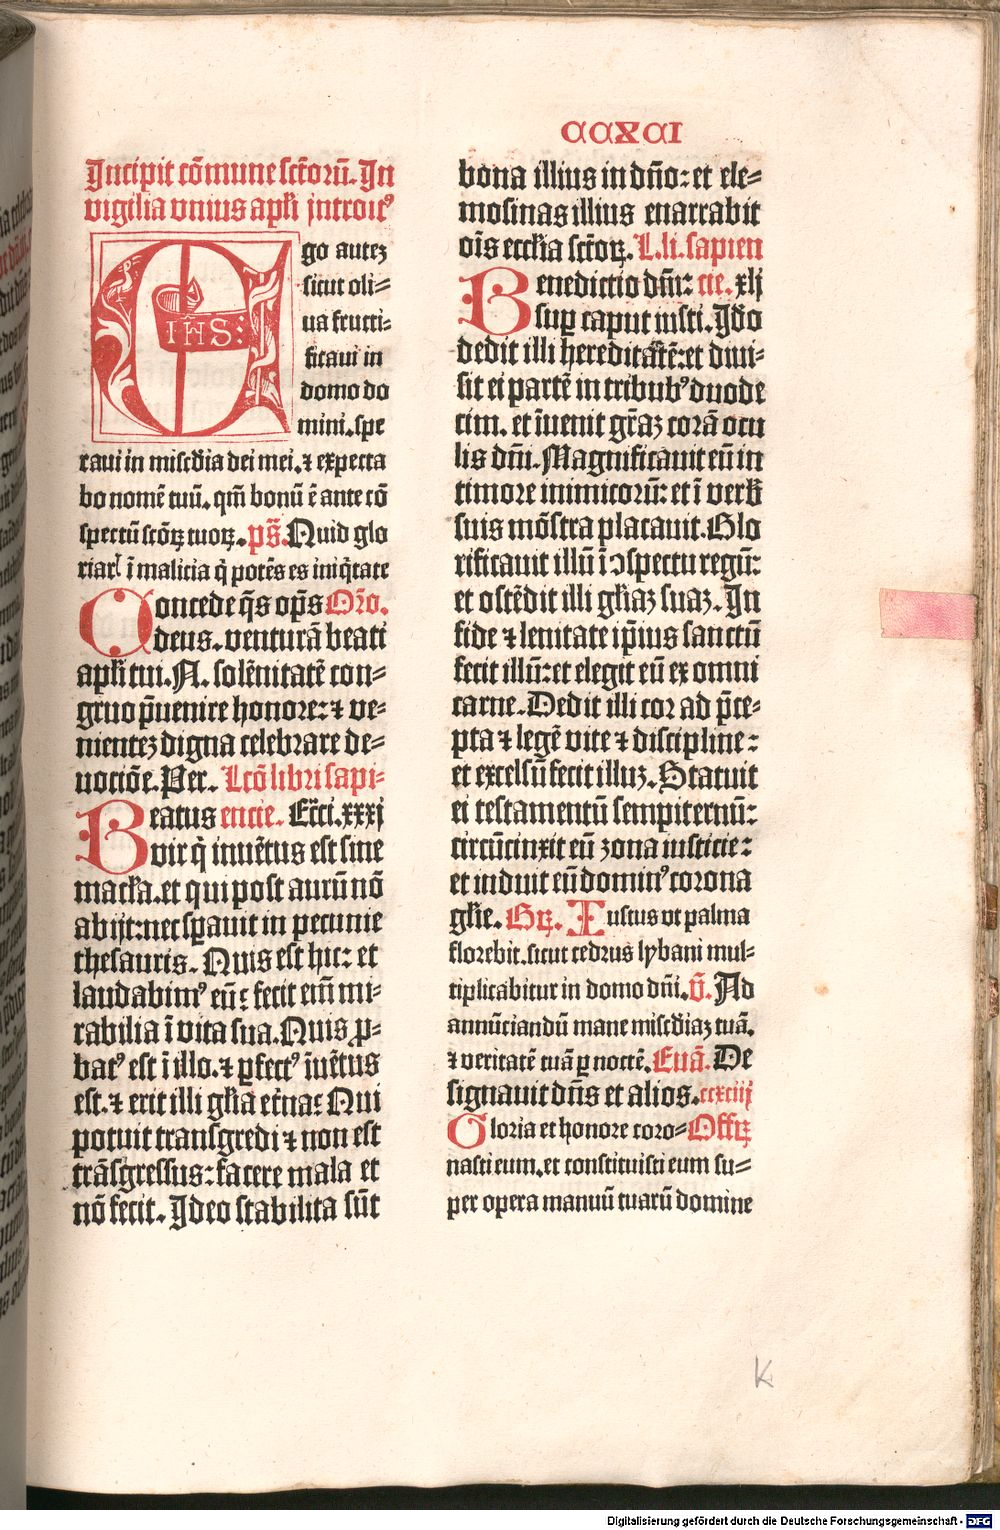 CCXCI
Incipit cōmune sctōrū. In
vigilia vnius apl̄i introitꝰ
Ego autez
IHS:
sicut oli=
ua fructi=
ficaui in
domo do
mini. spe
raui in miscd̄ia dei mei. ⁊ expecta
bo nomē tuū. qm̄ bonū ē ante cō
spectū sctōꝝ tuoꝝ. ps̄. Quid glo
riaris ī malicia q̄ potēs es iniq̄tate
Concede q̄s op̄s Orō.
deus. venturā beati
apl̄i tui. N. solēnitatē con=
gruo p̄uenire honore: ⁊ ve=
nientez digna celebrare de=
uociōe. Per. Lcō libri sapi=
Beatus encie. Ecc̄i. xxxj
vir q̄ inuētus est sine
macl̄a. et qui post aurū nō
abijt: nec spauit in pecunie
thesauris. Quis est hic: et
laudabimꝰ eū: fecit eīm mi=
rabilia ī vita sua. Quis ꝓ=
batꝰ est ī illo. ⁊ ꝑfectꝰ īuētus
est. ⁊ erit illi gl̄ia et̄na: Qui
potuit transgredi ⁊ non est
trāsgressus: facere mala et
nō fecit. Ideo stabilita sūt
bona illius in dn̄o: et ele=
mosinas illius enarrabit
oīs eccl̄ia sctōꝝ. L. li. sapien
Benedictio dn̄i: cie. xlij
sup caput iusti. Idō
dedit illi hereditatē: et diui=
sit ei partē in tribubꝰ duode
cim. et īuenit gr̄az corā ocu
lis dn̄i. Magnificauit eū in
timore inimicorū: et ī verb̄
suis mōstra placauit. Glo
rificauit illū ī ↄspectu regū:
et ostēdit illi gl̄iaz suaz. In
fide ⁊ lenitate ip̄ius sanctū
fecit illū: et elegit eū ex omni
carne. Dedit illi cor ad p̄ce=
pta ⁊ legē vite ⁊ discipline:
et excelsū fecit illuz. Statuit
ei testamentū sempiternū:
circūcinxit eū zona iusticie:
et induit eū dominꝰ corona
gl̄ie. Gr̄. Iustus vt palma
florebit. sicut cedrus lybani mul=
tiplicabitur in domo dn̄i. v̄. Ad
annūciandū mane miscd̄iaz tuā.
⁊ veritatē tuā ꝑ noctē. Euā. De
signauit dn̄s et alios. ccxciij
Gloria et honore coro= Offꝝ
nasti eum. et constituisti eum su=
per opera manuū tuarū domine
K
Digitalisierung gefördert durch die Deutsche Forschungsgemeinschaft - DFG